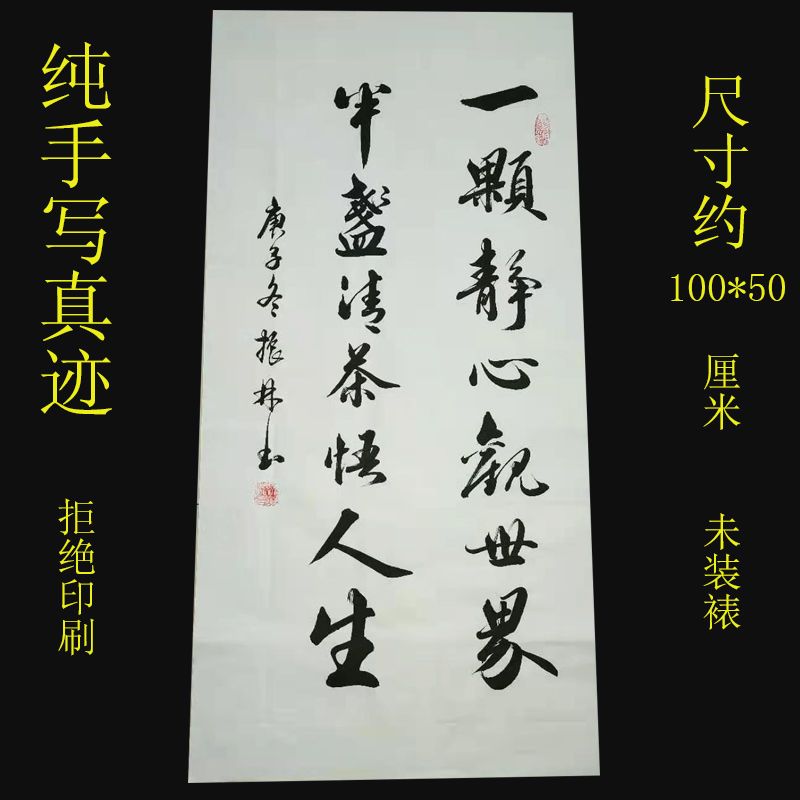 纯手写真迹
拒绝印刷
一颗静心觀世界
半盏清茶悟人生
庚子冬振林书
尺寸约
100*50
厘米
未装裱